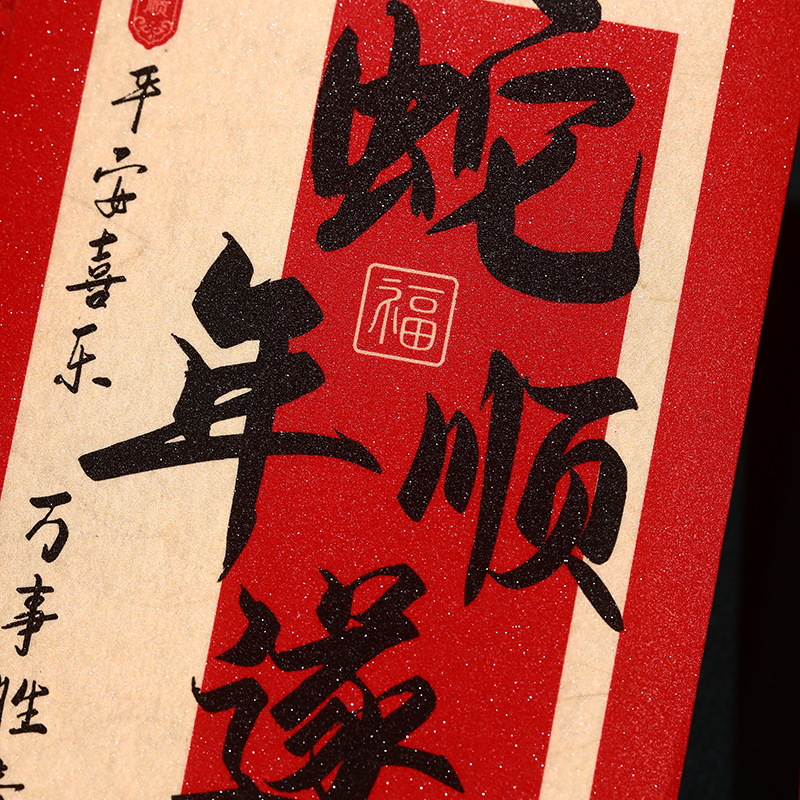 蛇年顺遂
福
顺
平安喜乐
万事胜